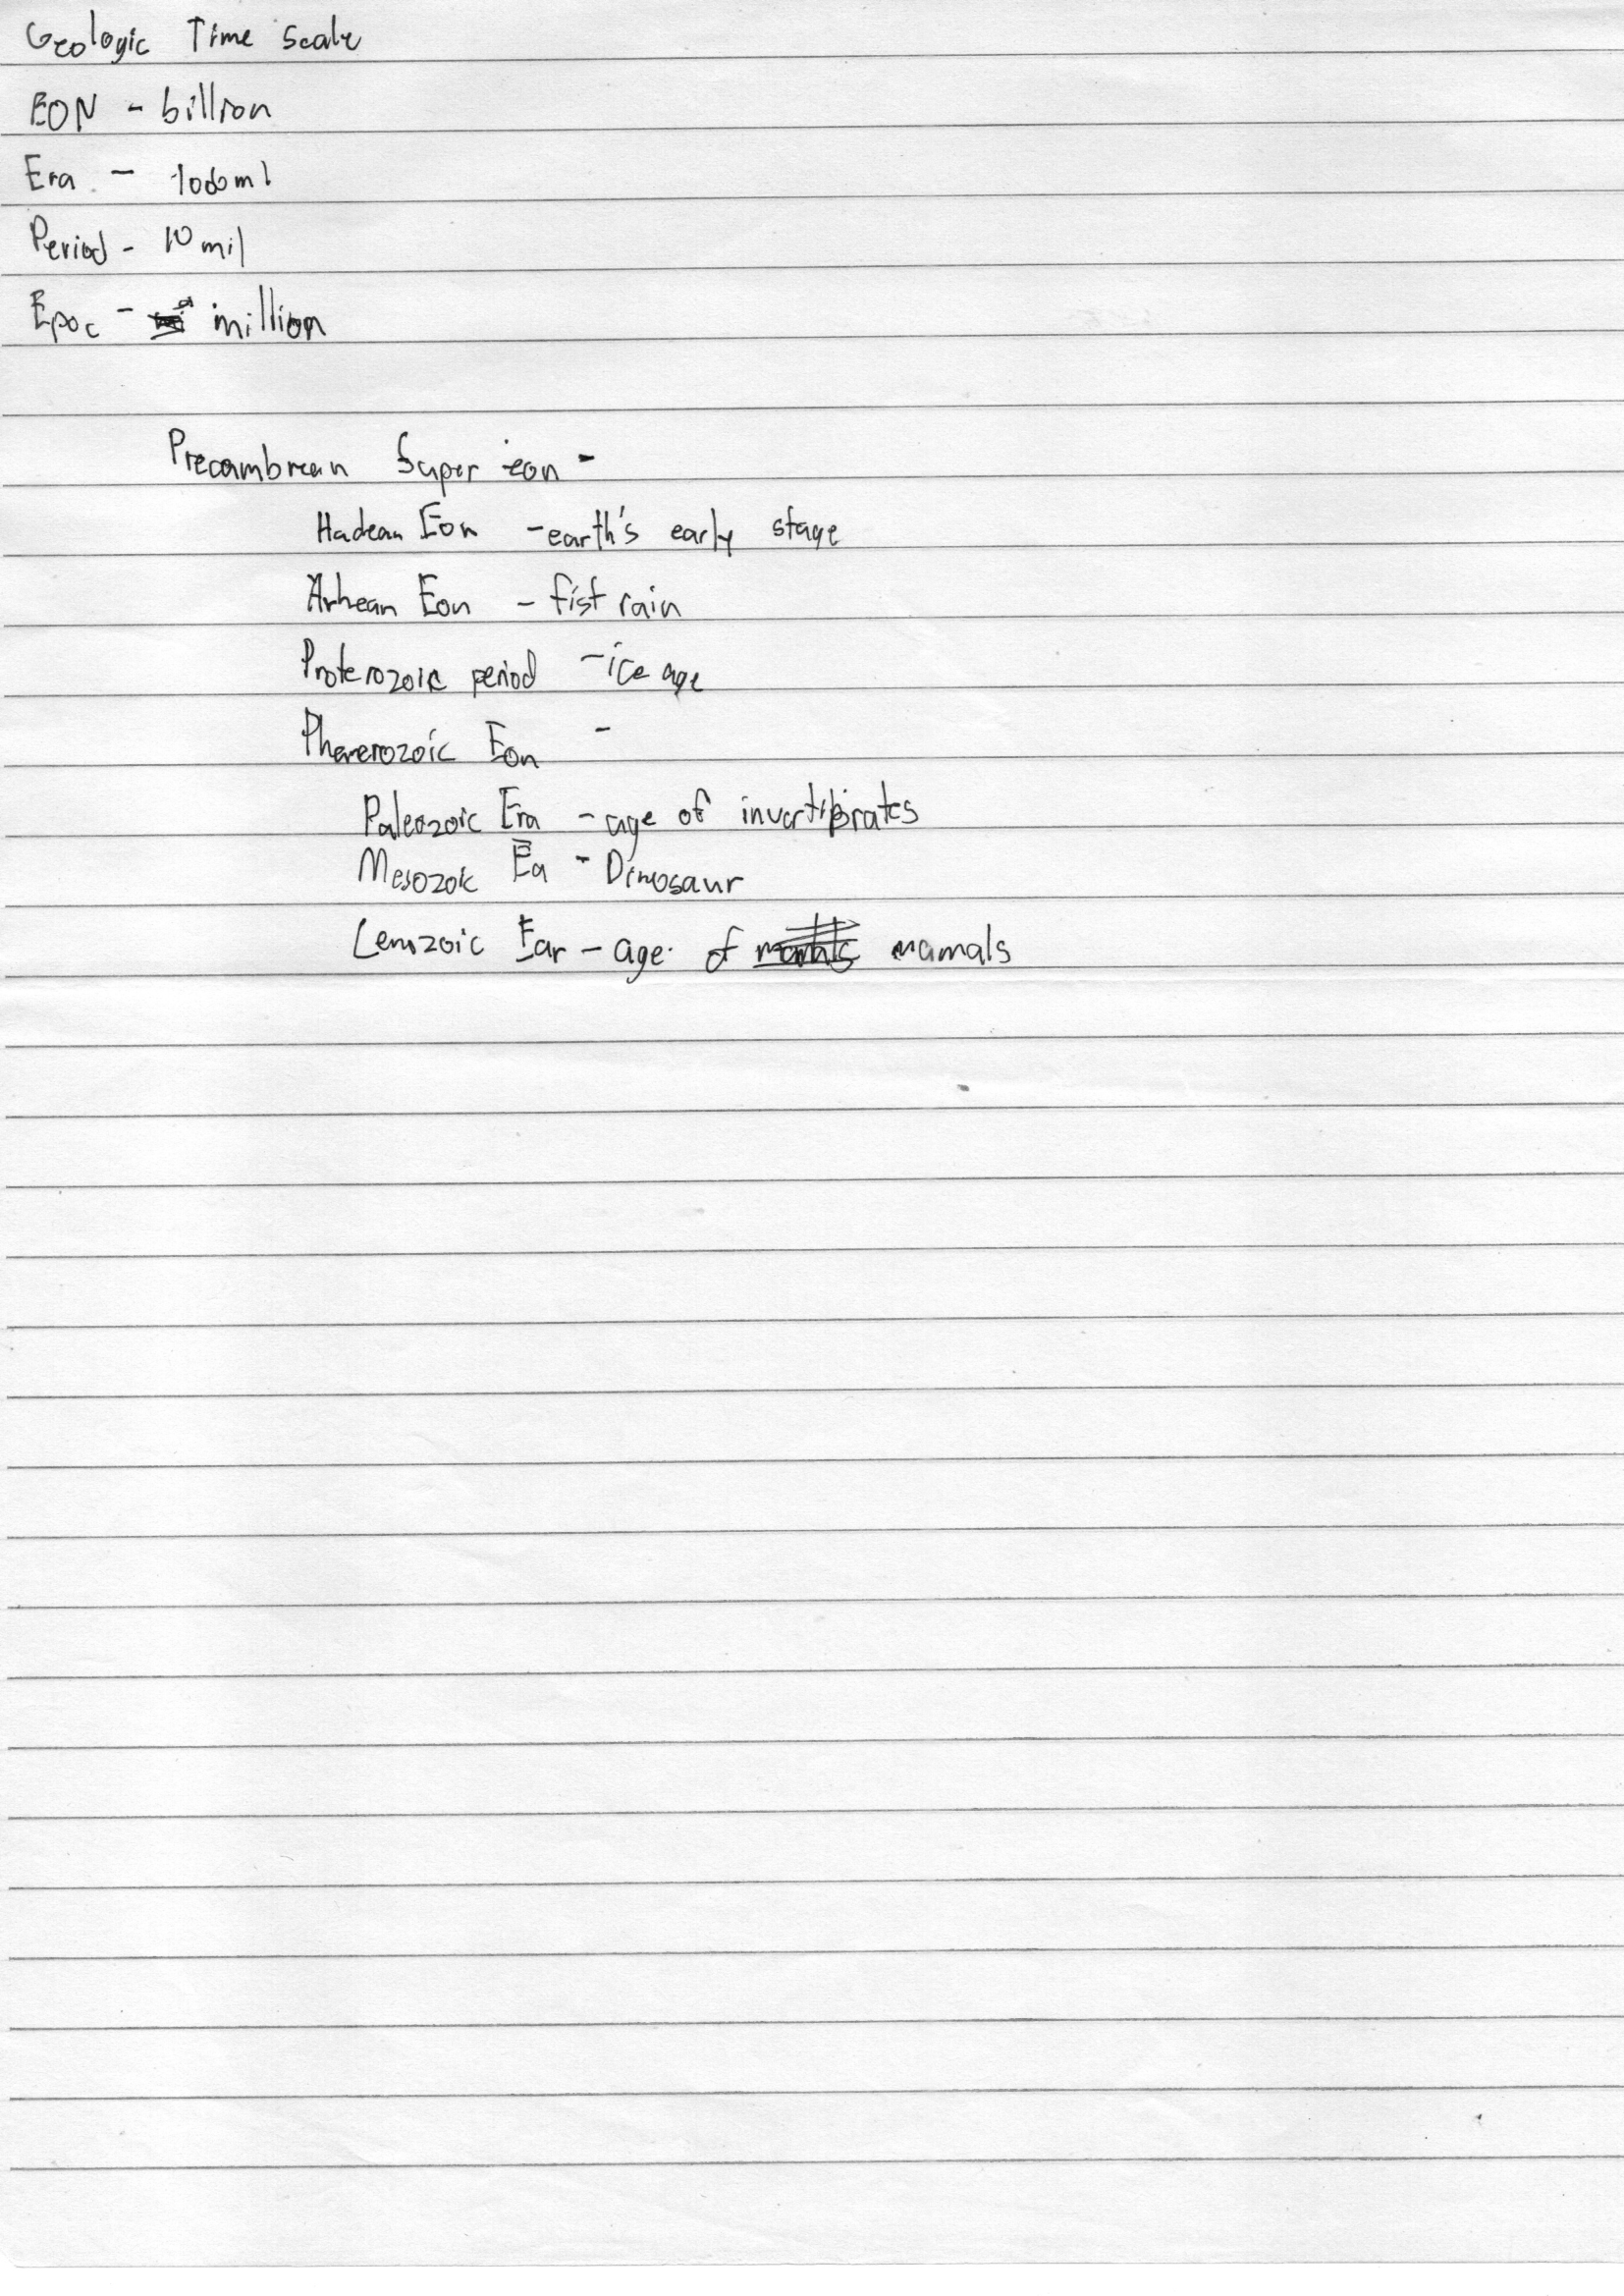 Geologic Time Scale
EON - billion
Era - 100ml
Period - 10 mil
Epoc - a million
Precambrean Super eon -
Hadean Eon - earth's early stage
Arhean Eon - fist rain
Proterozoic period - ice age
Phanerozoic Eon -
Paleozoic Era - age of invertibrates
Mesozoic Ea - Dinosaur
Cenozoic Ear - age of mamals